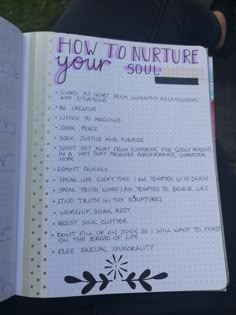 HOW TO NURTURE
your SOUL
• GUARD MY HEART FROM UNHEALTHY RELATIONSHIPS
AND SITUATIONS
• BE CREATIVE
• LISTEN TO
• SEEK PEACE
• SEEK JUSTICE AND PURPOSE
• DON'T SHY AWAY FROM SUFFERING FOR GOOD REASONS
IN A WAY THAT PRODUCES PERSEVERANCE, CHARACTER,
HOPE
• REPENT QUICKLY
• SPEAK LIFE EVERY TIME I AM TEMPTED WITH DEATH
• SPEAK TRUTH WHEN I AM TEMPTED TO BELIEVE LIES
• FIND TRUTH IN THE SCRIPTURES
• WORSHIP, SOAK, REST
• RESIST SOUL CLUTTER
• DON'T FILL UP ON JUNK SO I WILL WANT TO FEAST
ON THE BREAD OF LIFE
• FLEE SEXUAL IMMORALITY